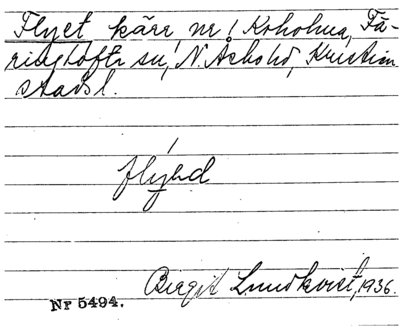 Flyet kärr nr! Krkholma, Fä-
ringtofta sn, N. Åsbo hd, Kristian
stads l.
flýəd
Birgit Lundkvist, 1936.
Nr 5494.